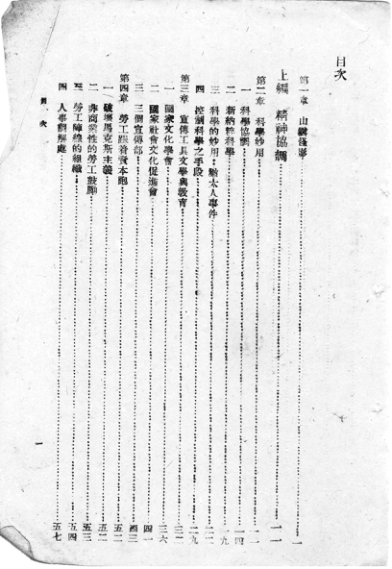 目次
第一章　山 ………… 一
上編　精神協調 ………… 一一
第二章　科學妙用 ………… 一一
一　科學協調 ………… 一四
二　新納粹科學 ………… 一九
三　科學的妙用：猶太人事件 ………… 二二
四　控制科學之手段 ………… 二九
第三章　宣傳工具文學與敎育 ………… 三二
一　國家文化學會 ………… 三六
二　國家社會文化促進會 ………… 四一
三　三個宣傳部 ………… 四三
第四章　勞工跟着資本跑 ………… 五二
一　破壞馬克斯主義 ………… 五二
二　非商業性的勞工鼓勵 ………… 五三
三　勞工陣線的組織 ………… 五四
四　人事調解處 ………… 五七
目　次
一